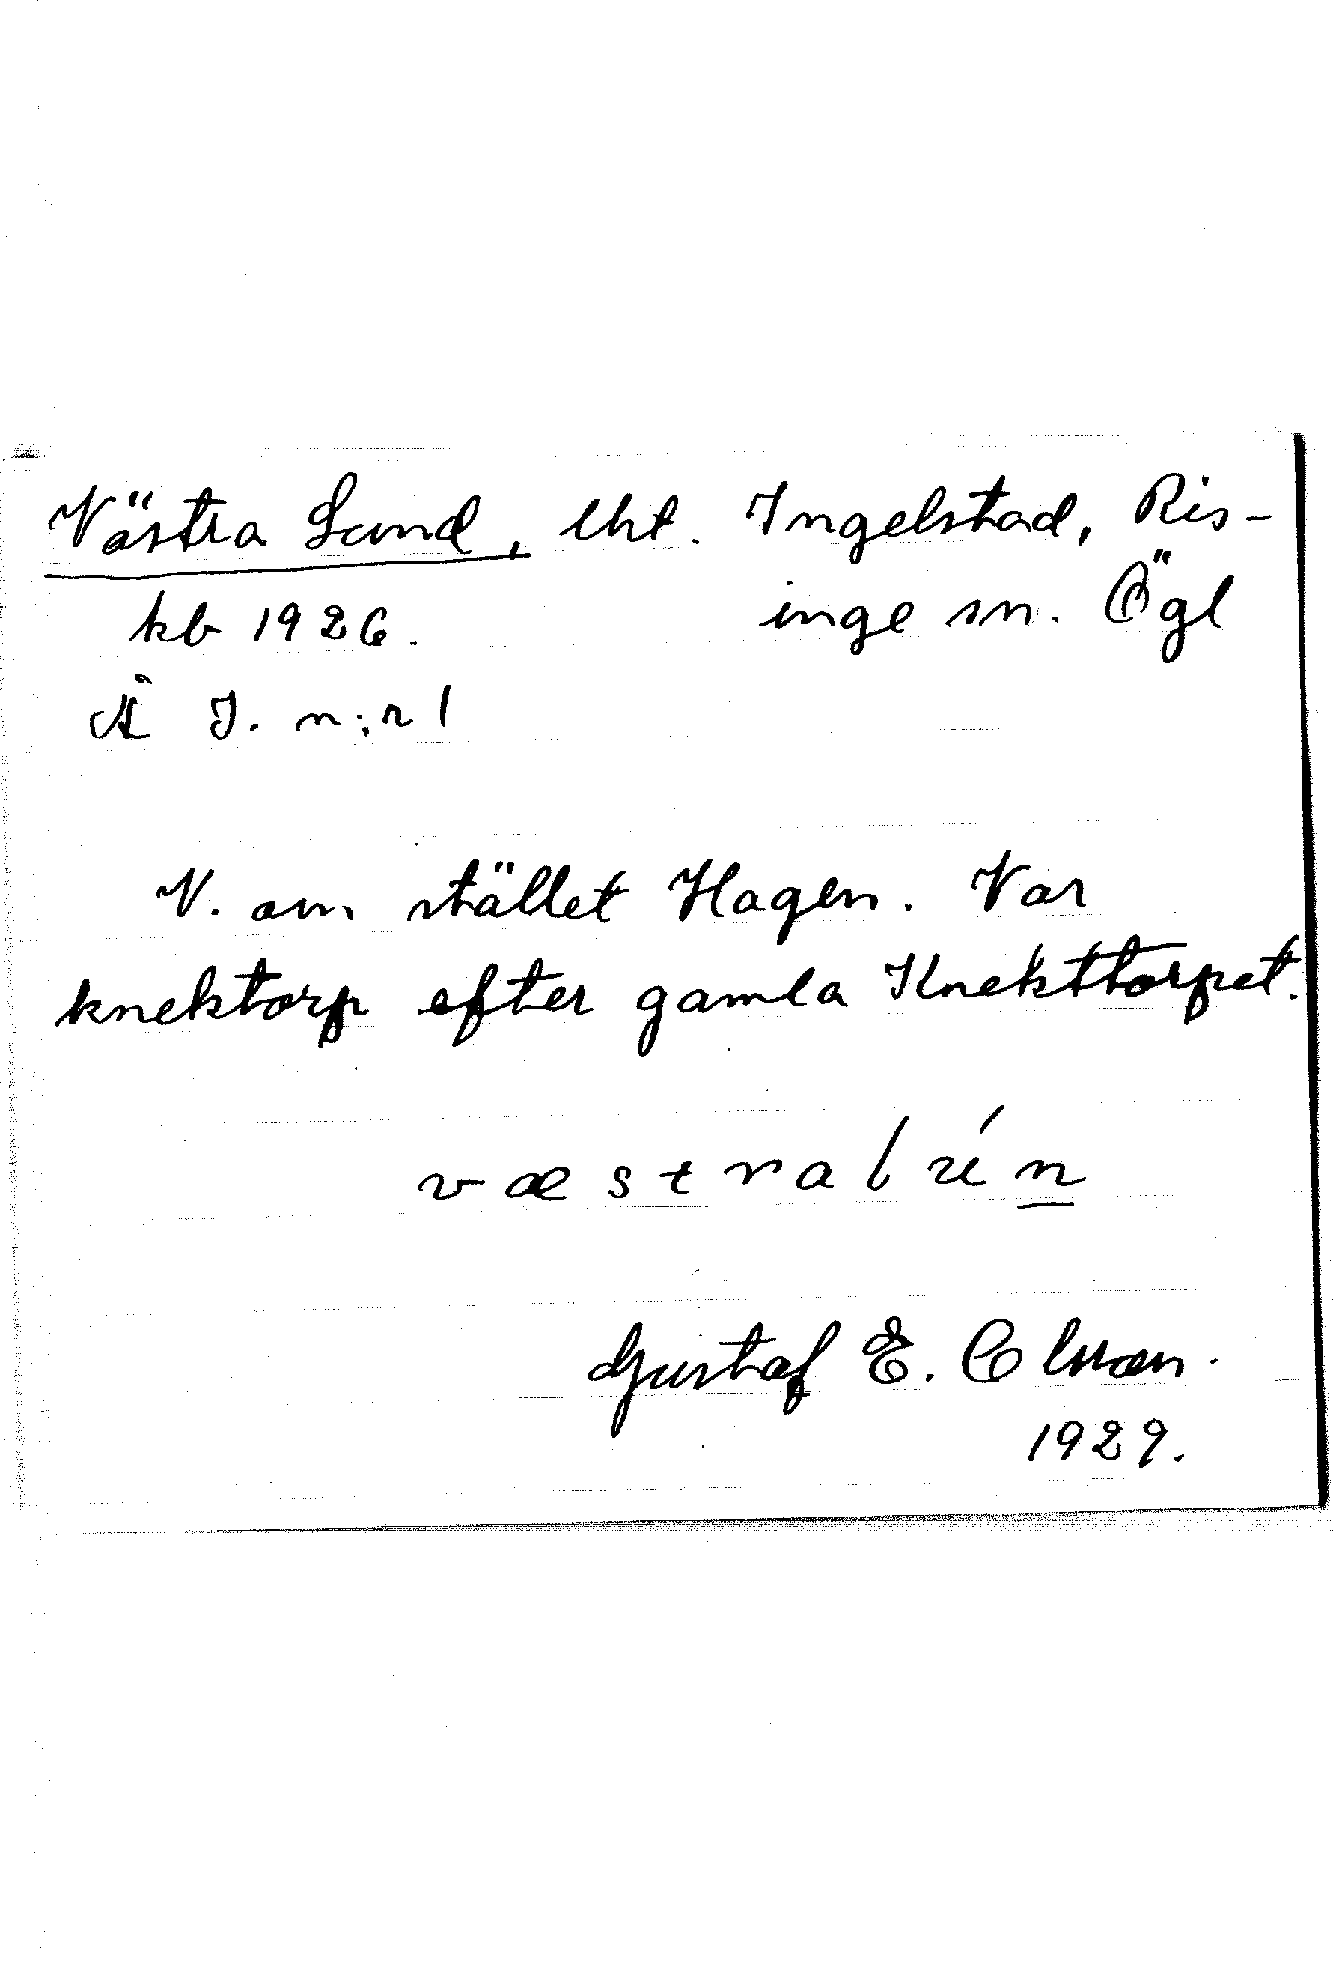 Västra Lund, lht. Ingelstad, Ris-
kb 1926. inge sn. Ögl
Å I. n:r 1
V. om stället Hagen. Var
knektorp efter gamla Knekttorpet.
væstralún
Gustaf E.
1929.